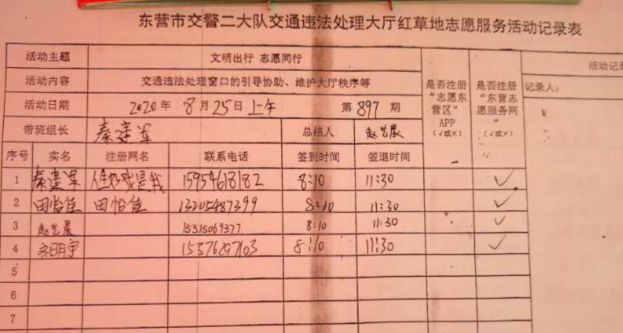 东营市交警二大队交通违法处理大厅红草地志愿服务活动记录表
活动主题 文明出行 志愿同行
活动内容 交通违法处理窗口的引导协助、维护大厅秩序等
活动日期 2020年8月25日上午 第897期
是否注册“志愿东营区”APP（√或×）
是否注册“东营志愿服务网”（√或×）
活动记
记录人：
带班组长 秦建军 总结人
序号 实名 注册网名 联系电话 签到时间 签退时间
1 秦建军 15954618182 8:10 11:30 ✓
2 田怡佳 田怡佳 13205487399 8:10 11:30 ✓
3 15315069377 8:10 11:30 ✓
4 15376297103 8:10 11:30 ✓
5
6
7